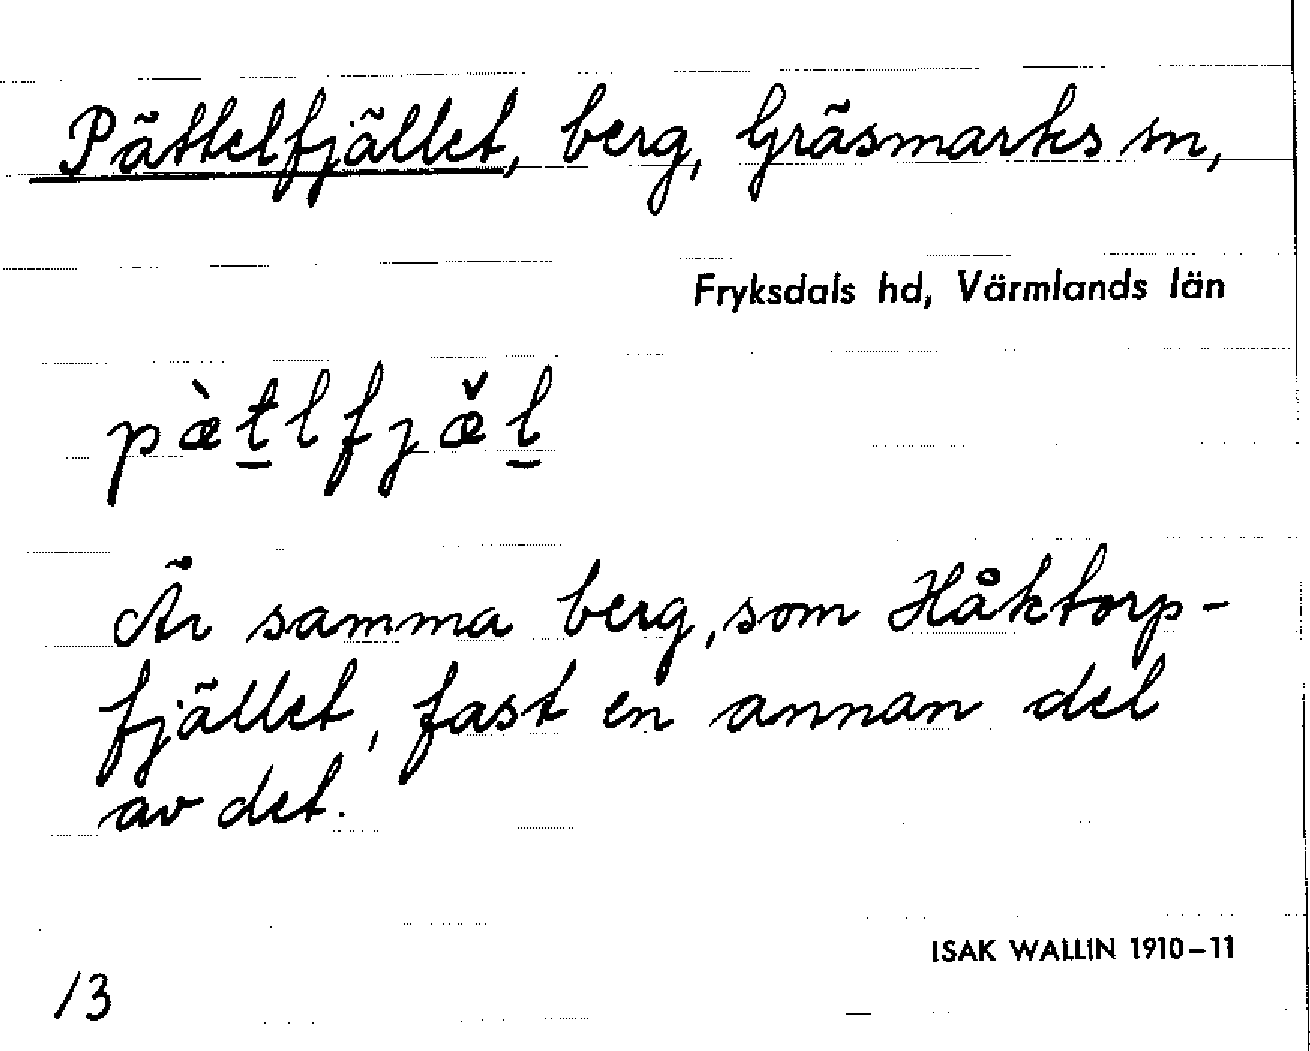 Pättelfjället, berg, Gräsmarks sn,
Fryksdals hd, Värmlands län
pæ̀t̲lfjæ̌l̲
Är samma berg, som Håktorp-
fjället, fast en annan del
av det.
ISAK WALLIN 1910–11
/3